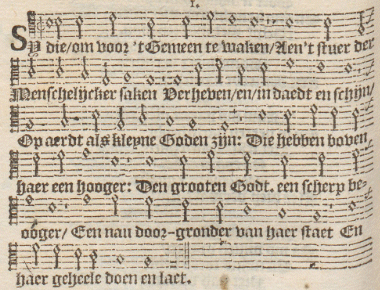 1.
Sy die/om voor 't Gemeen te waken/Aen't stuer der
Menschelijcker saken Verheven/en/in daedt en schijn/
Op aerdt als kleyne Goden zijn: Die hebben boven
haer een hooger: Den grooten Godt. een scherp be-
ooger/ Een nau door-gronder van haer staet En
haer geheele doen en laet.